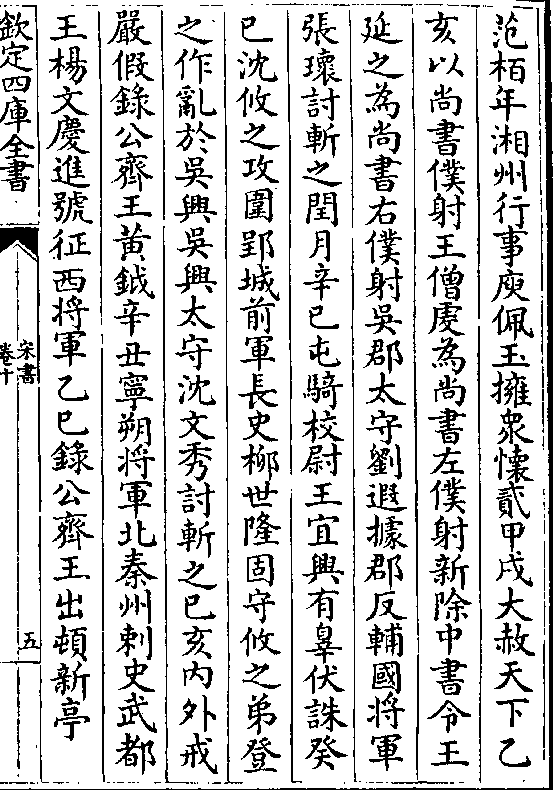 范栢年湘州行事庾佩玉擁衆懷貳甲戌大赦天下乙
亥以尚書僕射王僧䖍為尚書左僕射新除中書令王
延之為尚書右僕射吳郡太守劉遐據郡反輔國將軍
張瓌討斬之閏月辛巳屯騎校尉王宜興有辠伏誅癸
巳沈攸之攻圍郢城前軍長史柳世隆固守攸之弟登
之作亂於吳興吳興太守沈文秀討斬之已亥内外戒
嚴假錄公齊王黄鉞辛丑寧朔將軍北秦州刺史武都
王楊文慶進號征西將軍乙巳錄公齊王出頓新亭
欽定四庫全書
宋書
卷十
五